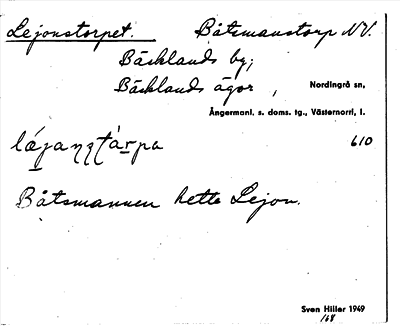 Lejonstorpet. Båtsmanstorp NV.
Bäcklands by;
Bäcklands ägor, Nordingrå sn,
Ångermanl. s. doms. tg., Västernorrl. l.
610
Båtsmannen hette Lejon.
Sven Hiller 1949
/68